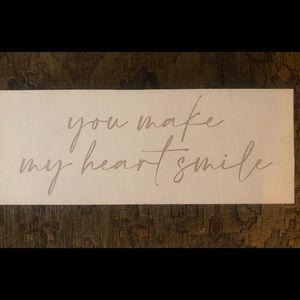 you make
my heart smile